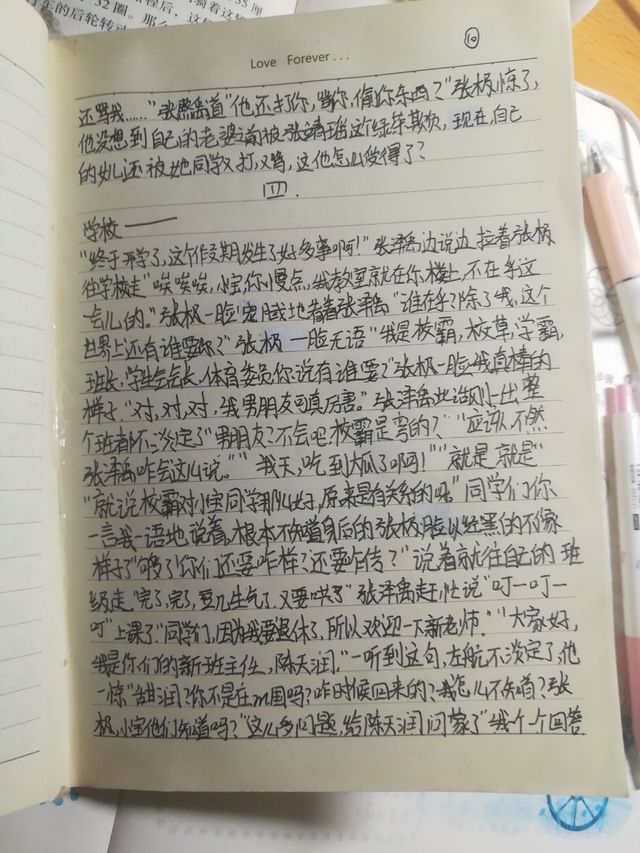 程后，这辆
35厘
32圈。那么
车的后轮转动
Love Forever...
⑩
还骂我……"张熙禹道"他还打你,骂你,值你东西？"张极惊了,
他没想到自己的老婆之前被张靖瑶这个绿茶欺负,现在,自己
的幼儿还被她同学又打,又骂,这他怎么受得了？
四.
学校——
"终于开学了,这个假期发生了好多事啊！"张泽禹边说边拉着张极
往学校走"唉唉唉,小宝,你慢点,我教室就在你楼上,不在乎这
一会儿的。"张极一脸宠溺地看着张泽禹"谁在乎？除了我,这个
世界上还有谁要你？"张极一脸无语"我是校霸,校草,学霸,
班长,学生会会长,体育委员你说有谁要？"张极一脸我真棒的
样子"对,对,对,我男朋友可真厉害。"张泽禹此话刚一出,整
个班都不淡定了"男朋友？不会吧,校霸是弯的？""应该,不然
张泽禹咋会这么说。""我天,吃到大瓜了啊！""就是就是"
"就说校霸对小宝同学那么好,原来是有关系的呀"同学们你
一言我一语地说着,根本不知道身后的张极脸以经黑的不像
样子了"够了你们还要咋样？还要乍传？"说着就往自己的班
级走"完了,完了,豆儿生气了,又要哄了"张泽禹赶忙说"叮一叮一
叮"上课了"同学们,因为我要退休了,所以欢迎一下新老师.""大家好,
我是你们的新班主任,陈天润."一听到这句,左航不淡定了,他
一惊"甜润？你不是在m国吗？咋时候回来的？我怎么不知道？张
极,小宝他们知道吗？"这么多问题,给陈天润问蒙了"我个一个回答